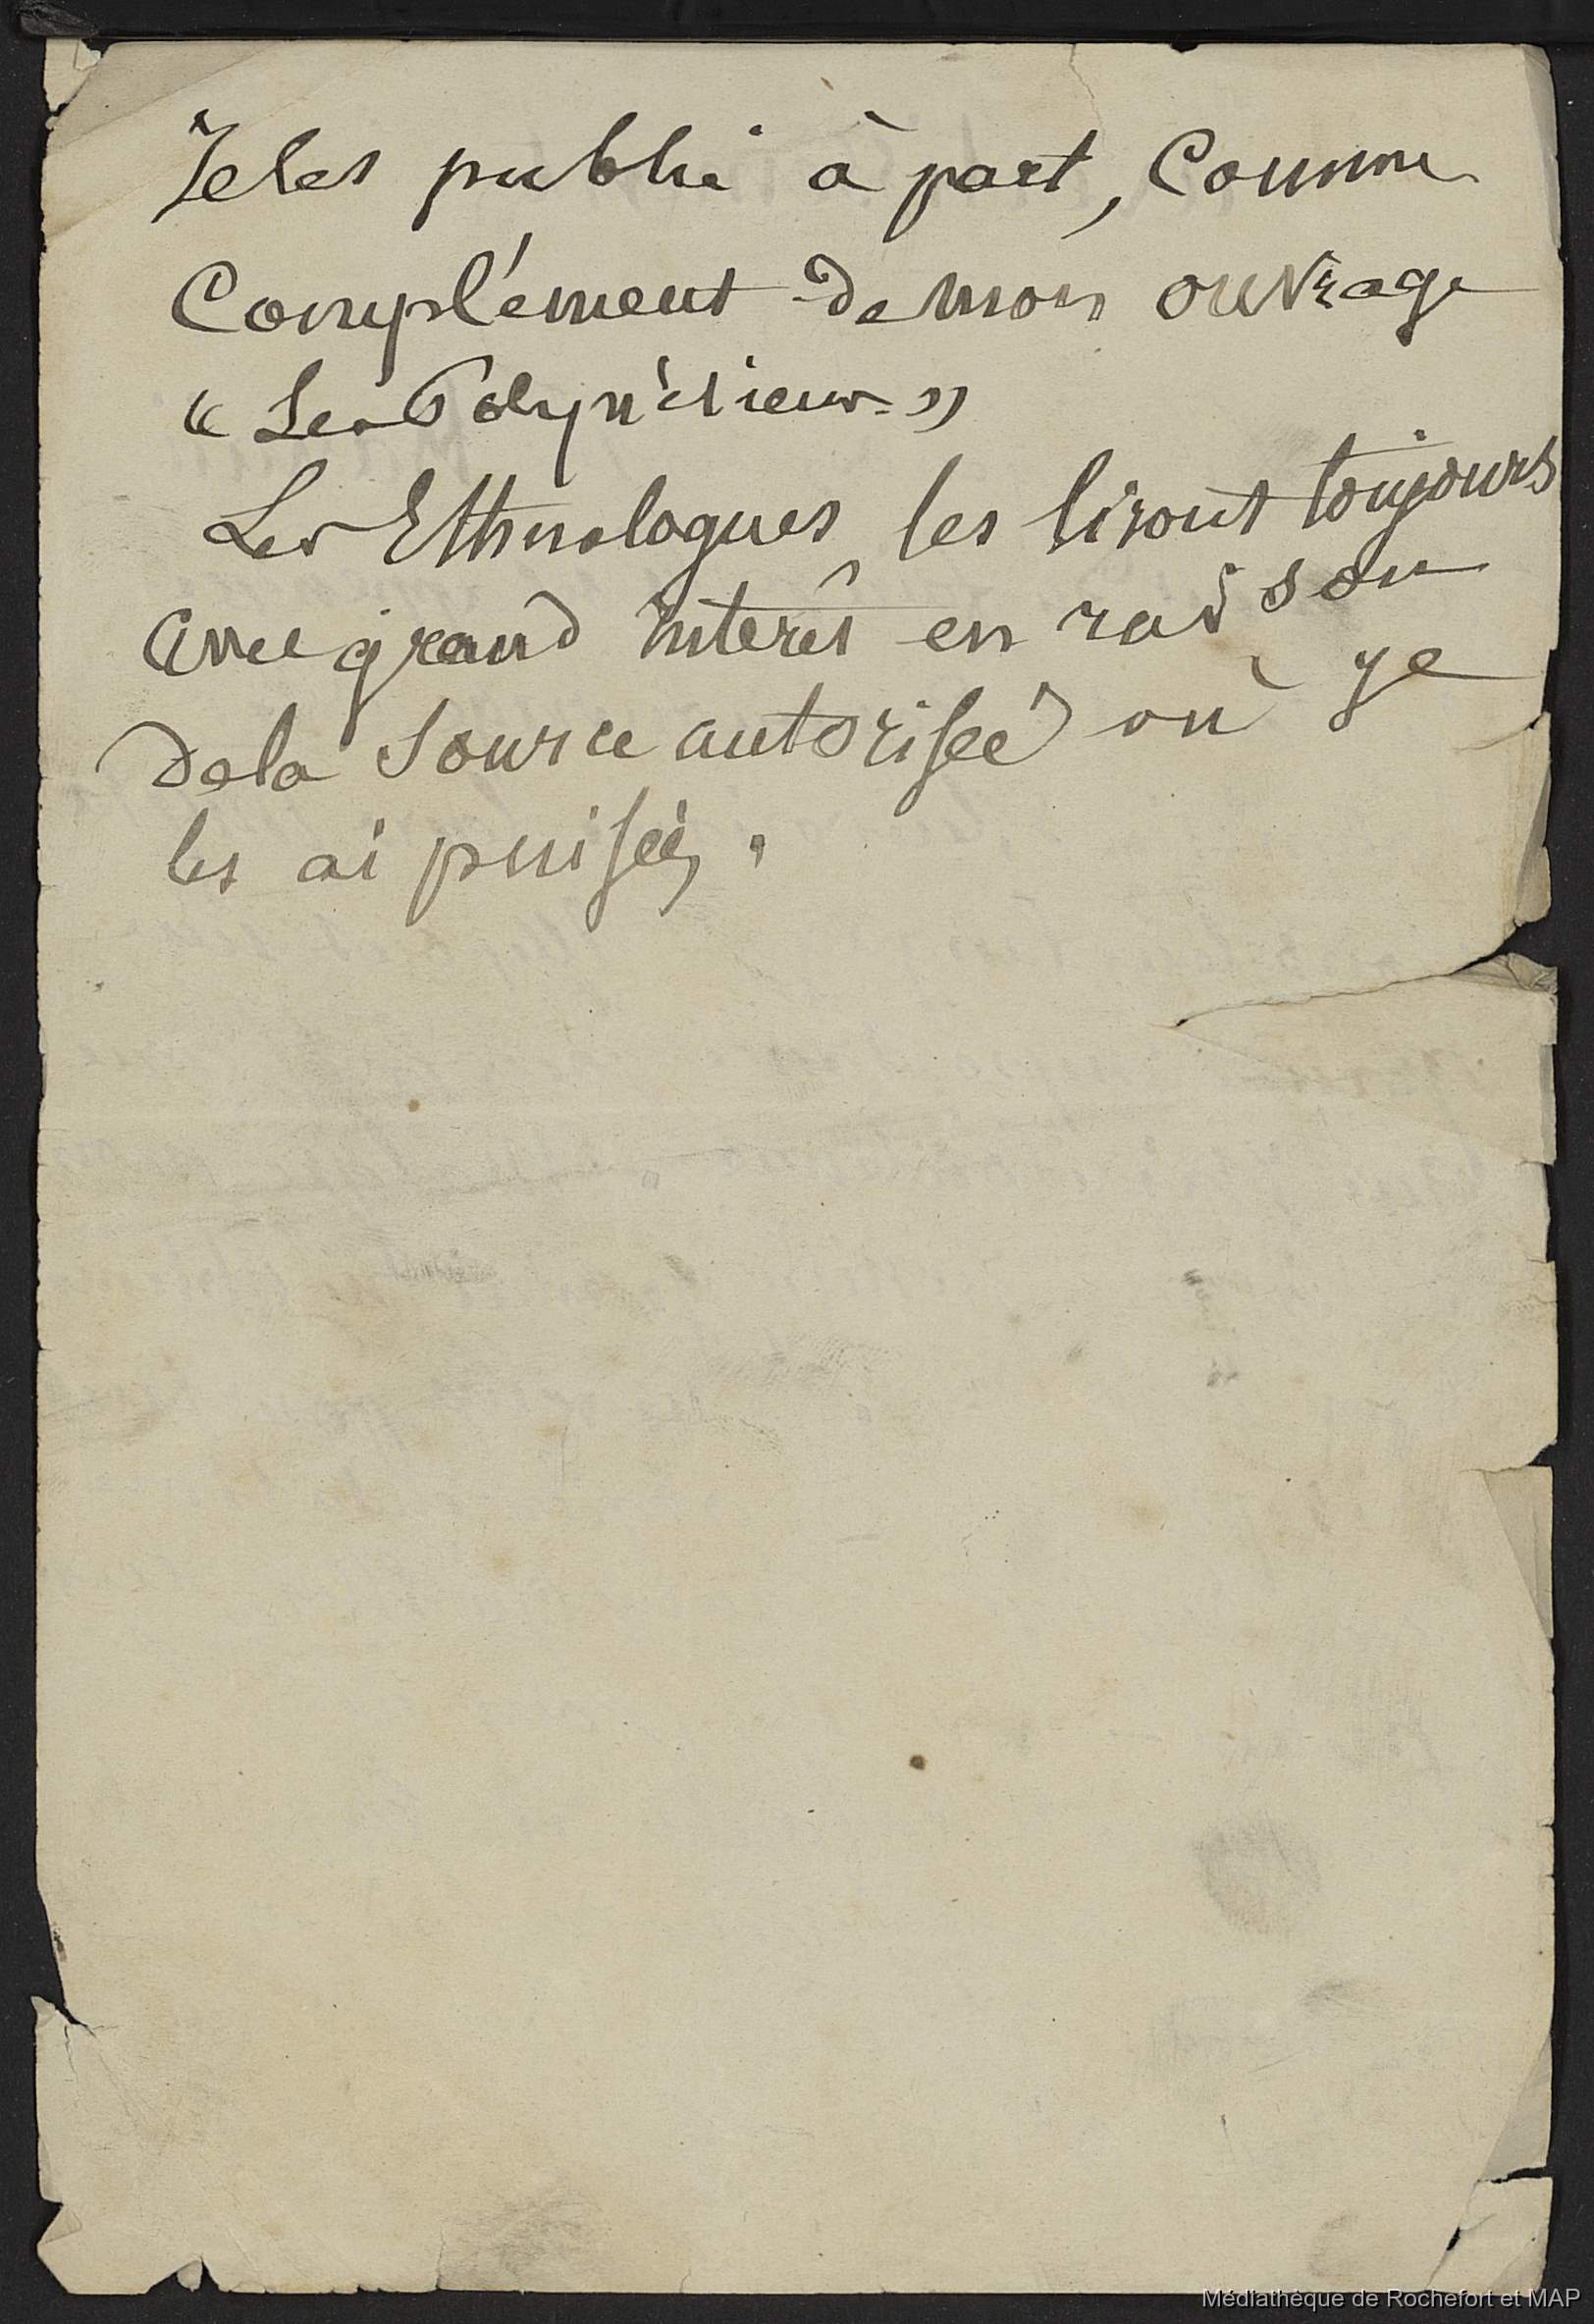 Je les publie à part, Comme
Complément de mon ouvrage
« Les Polynésiens »
Les Ethnologues les liront toujours
avec grand intérêt en raison
de la source autorisée où je
les ai puisées.
Médiathèque de Rochefort et MAP